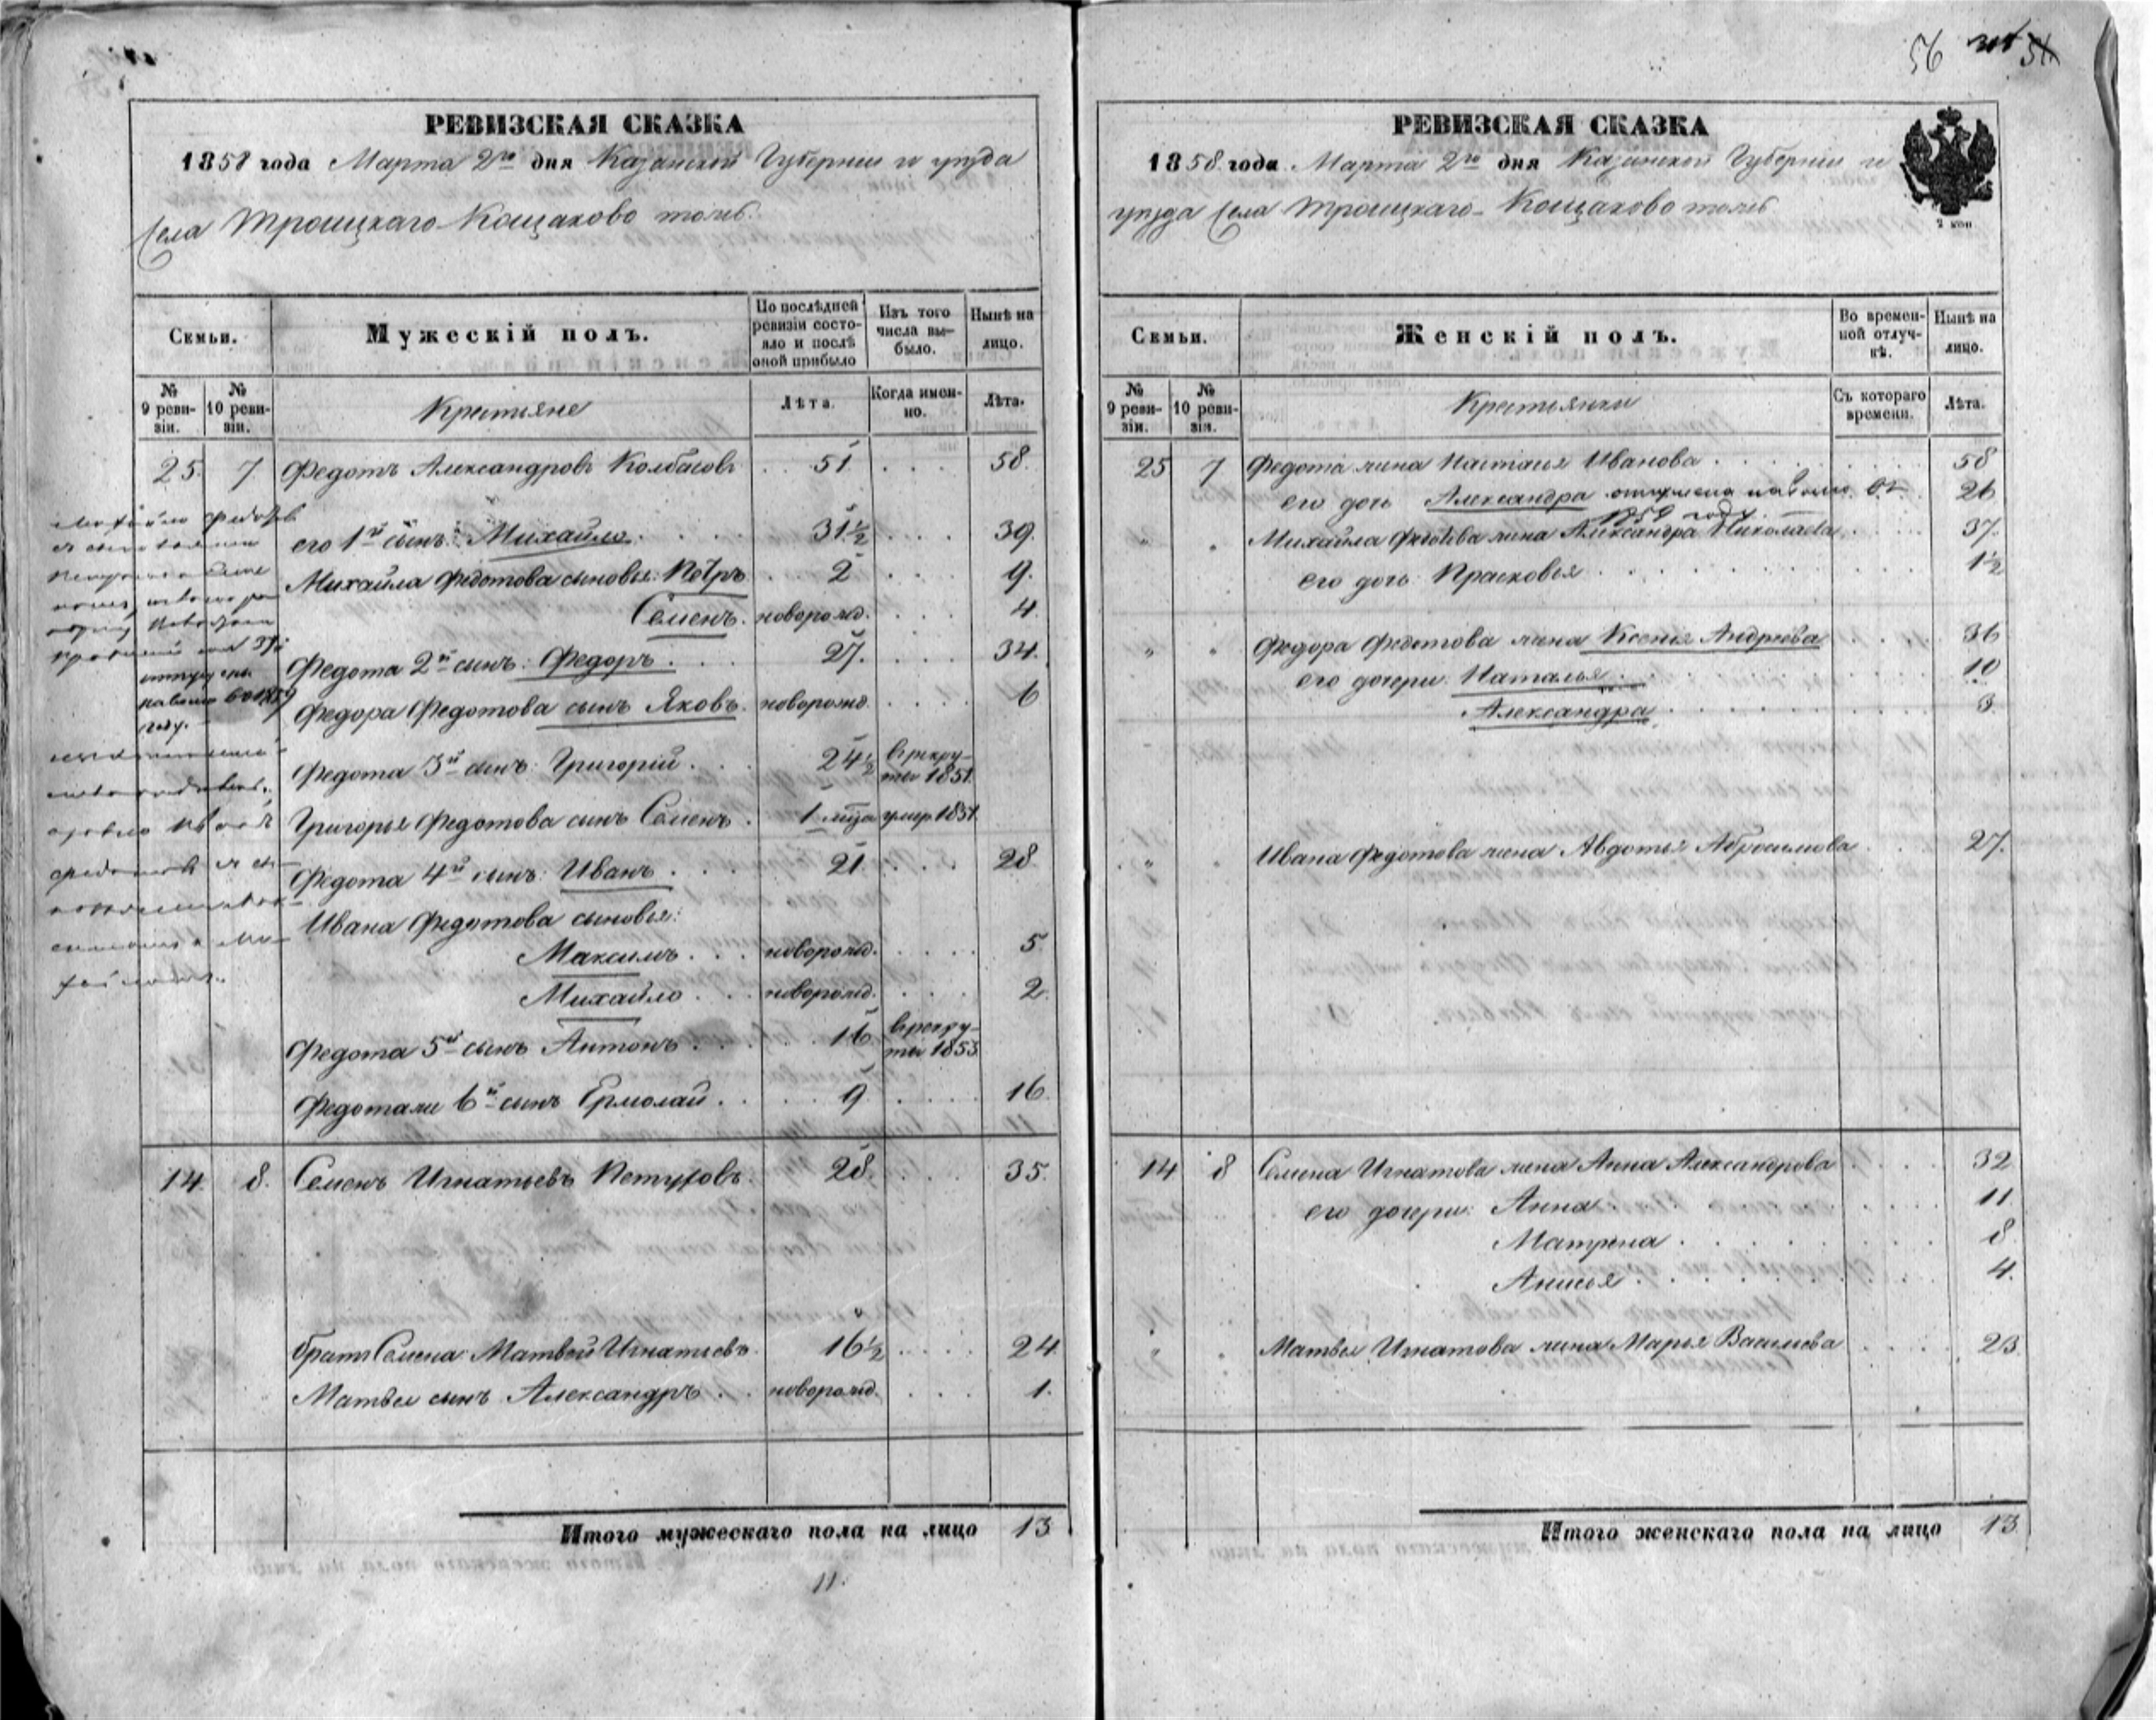 56
РЕВИЗСКАЯ СКАЗКА
1858 года Марта 2го дня Казанской Губернии и уезда
Села Троицкаго-Кощаково тожъ.
Семьи.
Мужескій полъ.
По послѣдней ревизіи состо-
яло и послѣ оной прибыло
Изъ того числа вы-
было.
Нынѣ на лицо.
№ 9 реви-
зіи.
№ 10 реви-
зіи.
Крестьяне
Лѣта.
Когда имен-
но.
Лѣта.
25. 7. Федотъ Александровъ Колбасовъ 51 58.
его 1й сынъ: Михайло 31½ 39.
Михайла Федотова сыновья: Петръ 2 9.
Семенъ. новорожд. 4
Федота 2й сынъ: Федоръ 27. 34.
Федора Федотова сынъ Яковъ. новорожд. 6
Федота 3й сынъ: Григорій 24½ в рекру-
ты 1851.
Григорья Федотова сынъ Семенъ. 1 мца умир. 1851.
Федота 4й сынъ: Иванъ 21 28
Ивана Федотова сыновья:
Максимъ новорожд. 5
Михайло новорожд. 2.
Федота 5й сынъ Антонъ 16 в рекру-
ты 1853.
Федота же 6й сынъ Ермолай 9 16
14. 8. Семенъ Игнатьевъ Петуховъ. 28. 35.
братъ Семена: Матвей Игнатьевъ. 16½ 24
Матвея сынъ Александръ новорожд. 1.
Итого мужескаго пола на лицо 13
11.
РЕВИЗСКАЯ СКАЗКА
1858 года Марта 2го дня Казанской Губерніи и
уезда Села Троицкаго-Кощаково тожъ
2 коп
Семьи.
Женскій полъ.
Во времен-
ной отлуч-
кѣ.
Нынѣ на лицо.
№ 9 реви-
зіи.
№ 10 реви-
зія.
Крестьянки
Съ котораго времени.
Лѣта.
25 7 Федота жена Настасья Иванова 58
его дочь Александра отпущена на волю въ 26
1859 году.
" " Михайла Федотова жена Александра Николаева 37.
его дочь Прасковья 1½
" " Федора Федотова жена Ксенья Андреева 36
его дочери: Наталья 10
Александра 3.
" " Ивана Федотова жена Авдотья Абросимова 27.
14 8 Семена Игнатова жена Анна Александрова 32
его дочери: Анна 11
Матрена 8
Анисья 4.
" " Матвея Игнатова жена Марья Васильева 23.
Итого женскаго пола на лицо 13.